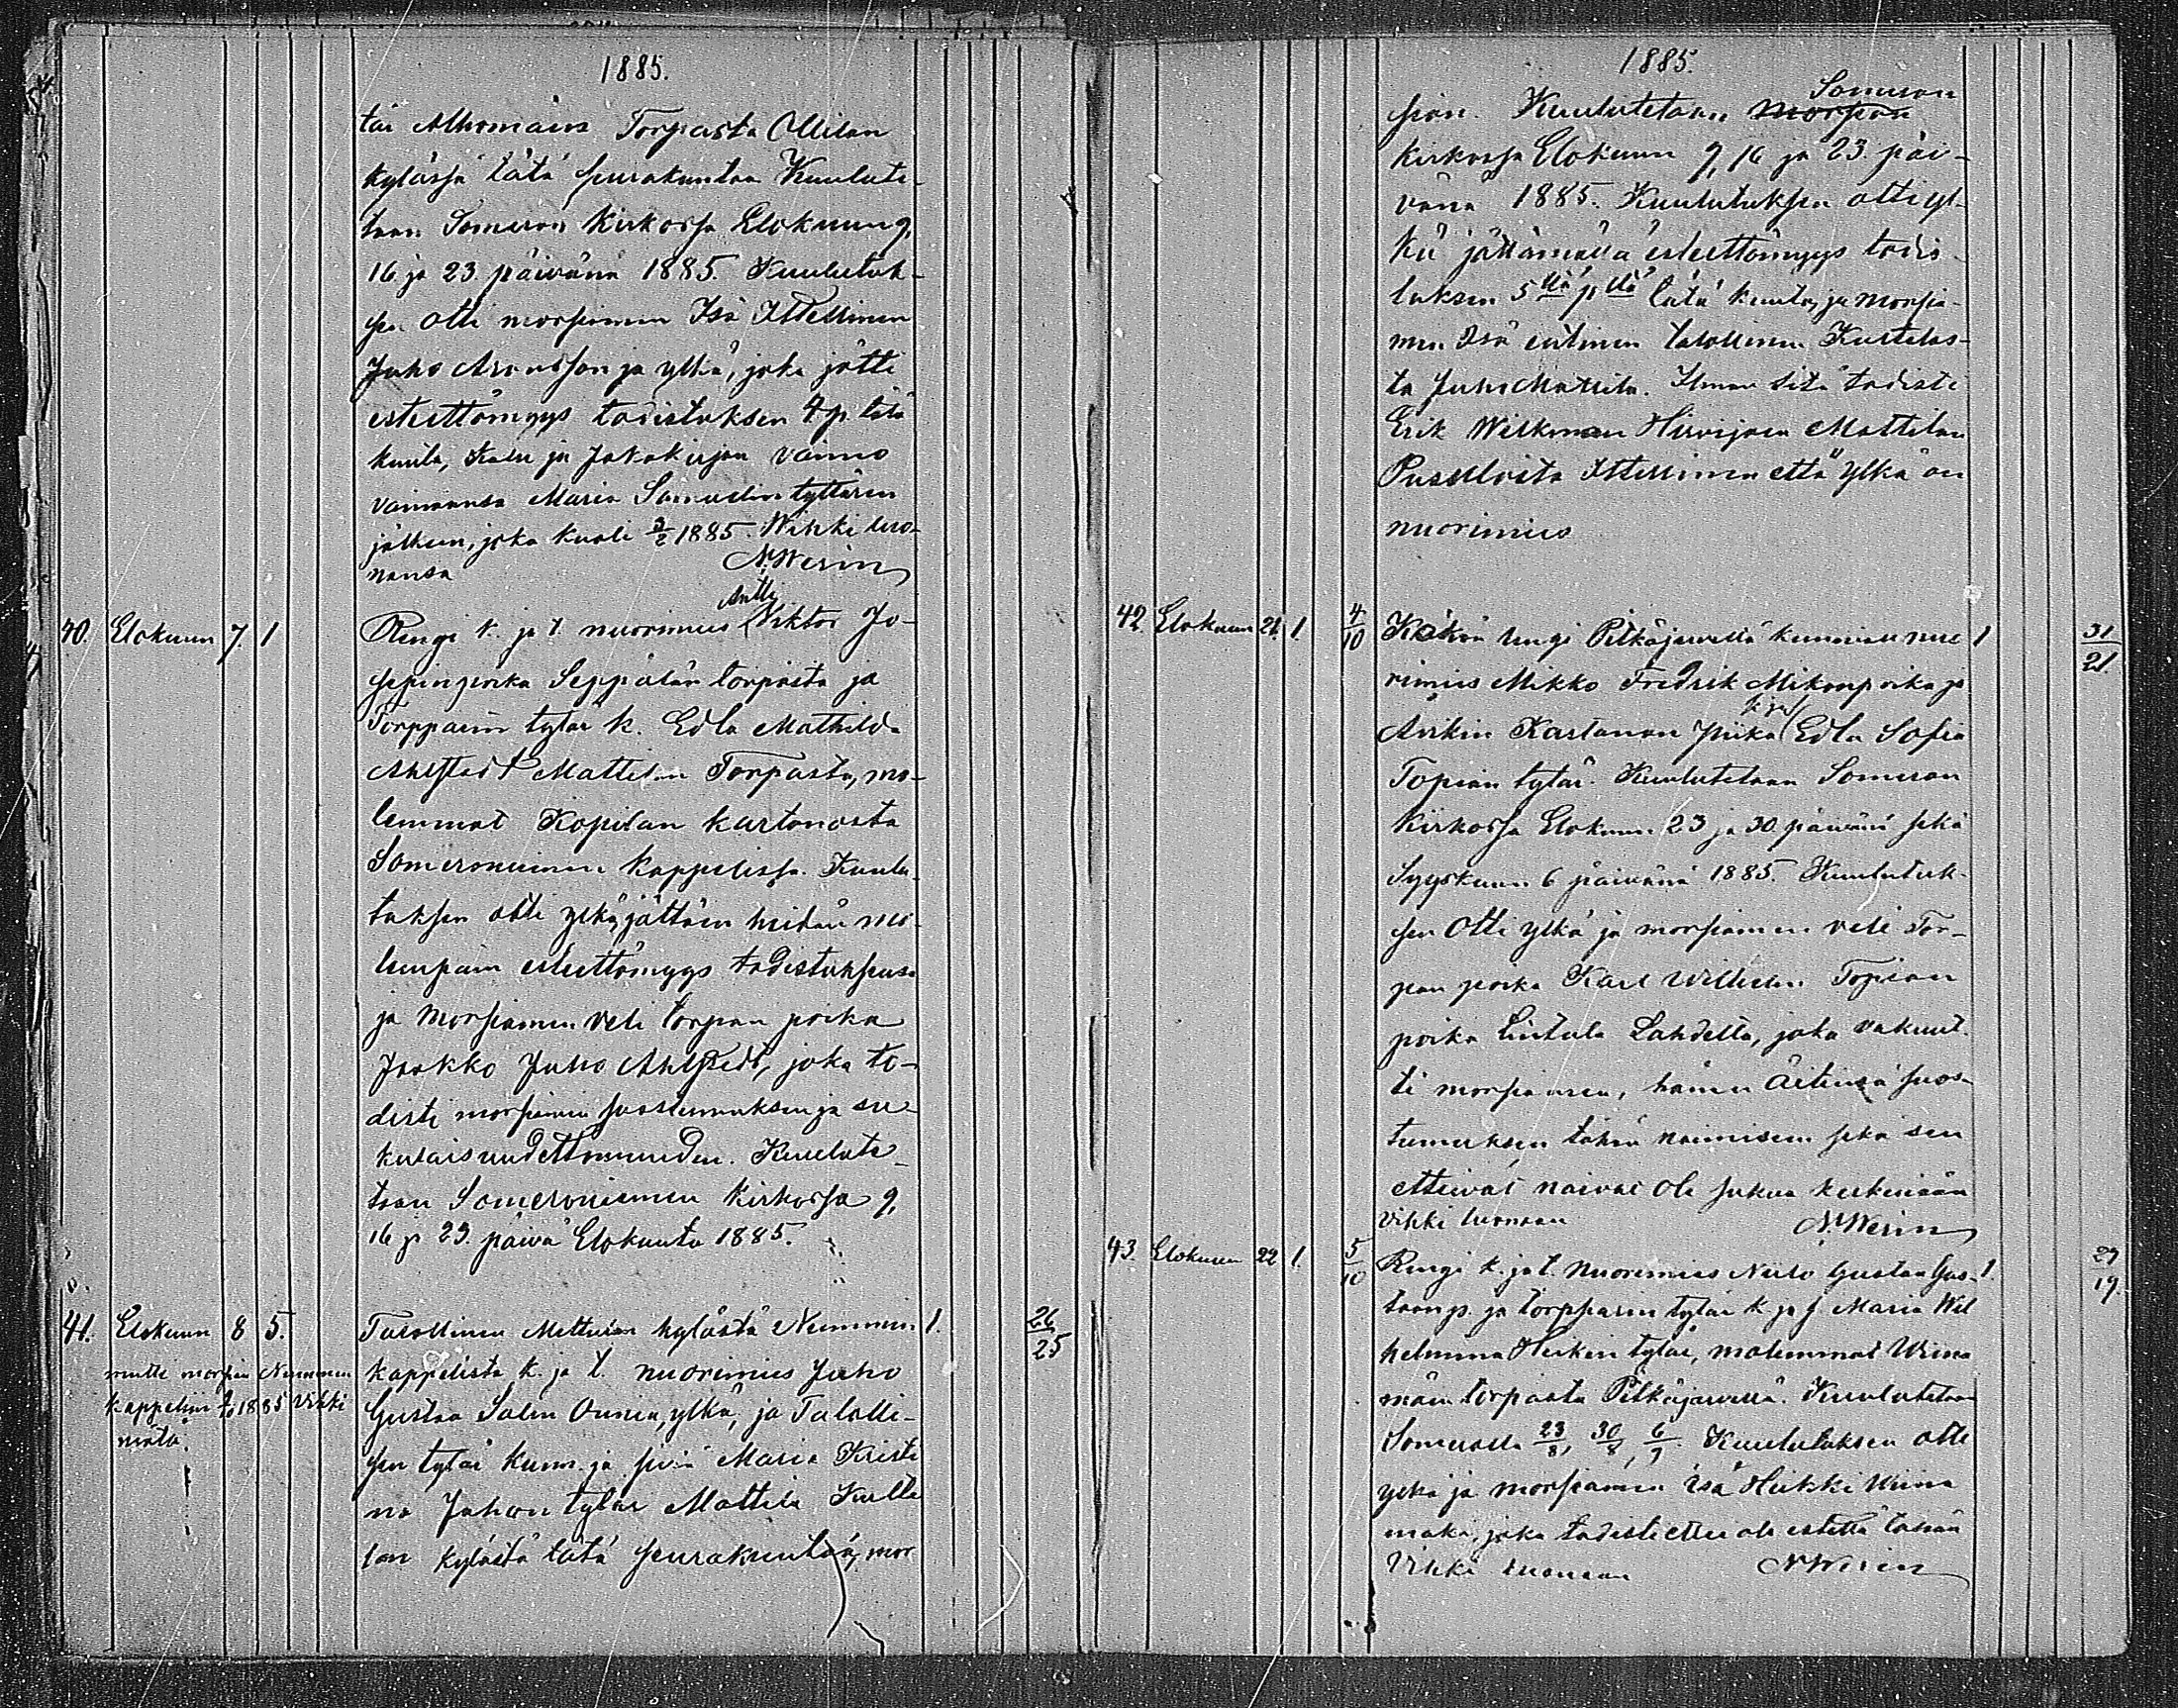 1885.
tär Alhomäen Torpasta Ollilan
kylässä tätä seurakuntaa Kuulute-
taan Someron Kirkossa Elokuun 9,
16 ja 23. päivänä 1885. Kuulutuk-
sen otti morsiamen Isä Ittellinen
Juho Aronsson ja ylkä, joka jätti
esteettömyys todistuksen 4 p. tätä
kuuta, Kalu ja Jakokirjan vaimo
vainaansa Maria Samuelin tyttären
jälkeen, joka kuoli 3/2 1885. Wihki luo-
nansa N. Wesin
40. Elokuun 7. 1 Rengi k. ja t. nuorimies Antti Viktor Jo-
sepinpoika Seppälän torpasta ja
Torpparin tytär k. Edla Mathilda
Ahlstedt Mattelan Torpasta, mo-
lemmat Kopilan kartanosta
Someroniemen kappelissa. Kuulu-
tuksen otti ylkä, jättäin heidän mo-
lempain esteettömyys todistuksensa
ja Morsiamen veli torpan poika
Jaakko Juho Ahlstedt, joka to-
disti morsiamen suostumuksen ja su-
kulaisuudettomuuden. Kuulute-
taan Someroniemen Kirkossa 9,
16 ja 23. päivä Elokuuta 1885.
41. Elokuun 8 5. Talollinen kylästä Nummen 1. 26/25
mutti morsian Nummen kappelista k. ja t. nuorimies Juho
kappeliin 1885 Vihki- Gustaa Salin Ounin, ylkä, ja Talolli-
mätä. sen tytär kunn. ja siviä Maria Kristi
na Juhon tytär Mattila Kulte
lan kylästä tätä seurakuntaa, mor
1885.
sian. Kuulutetaan Someron
Kirkossa Elokuun 9, 16 ja 23. päi-
vänä 1885. Kuulutuksen otti yl-
kä jättämällä esteettömyys todis-
tuksen 5 tätä kuuta, ja morsia-
men Isä entinen talollinen Kultelas-
ta Juho Mattila. Ilman sitä todisti
Erik Wilkman Hirvijoen Mattilan
Ittellinen että ylkä on
nuorimies
42. Elokuun 21. 1. 4/10 rengi Pitkäjärvellä kunniall. nuo 1 31/21.
rimies Mikko Fredrik Mikonpoika ja
Kastanan piika k. ja Edla Sofia
Topian tytär. Kuulutetaan Someron
Kirkossa Elokuun 23 ja 30 päivänä sekä
Syyskuun 6 päivänä 1885. Kuulutuk-
sen Otti ylkä ja morsiamen veli Tor-
pan poika Karl Wilhelm Topian
poika Lintula Lahdelta, joka vakuut-
ti morsiamen, hänen Äitinsä suos-
tumuksen tähän naimiseen sekä sen
etteivät naivat ole sukua keskenään
Vihki luonaan N. Wesin
43. Elokuun 22 1. 5/10 Rengi k. ja t. Nuorimies Niilo Gustaa Gus- 1. 29/19.
taan p. ja torpparin tytär k. ja s. Maria Wil
helmina Heikin tytär, molemmat Wiina
mäen torpasta Pitkäjärvellä. Kuulutetaan
Somerolla 23/8, 30/8, 6/9. Kuulutuksen otti
ylkä ja morsiamen isä Heikki Wiina
mäki, joka todisti ettei ole estettä tähän
Vihki luonaan N. Wesin